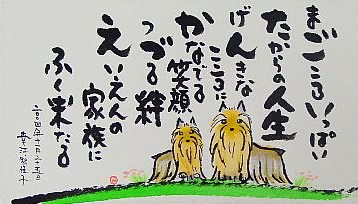 まごころいっぱい
たからの人生
げんきな
こころに
かなでる笑顔
つづる絆
えいえんの
家族に
ふく来たる
二〇〇四年十一月二十五日